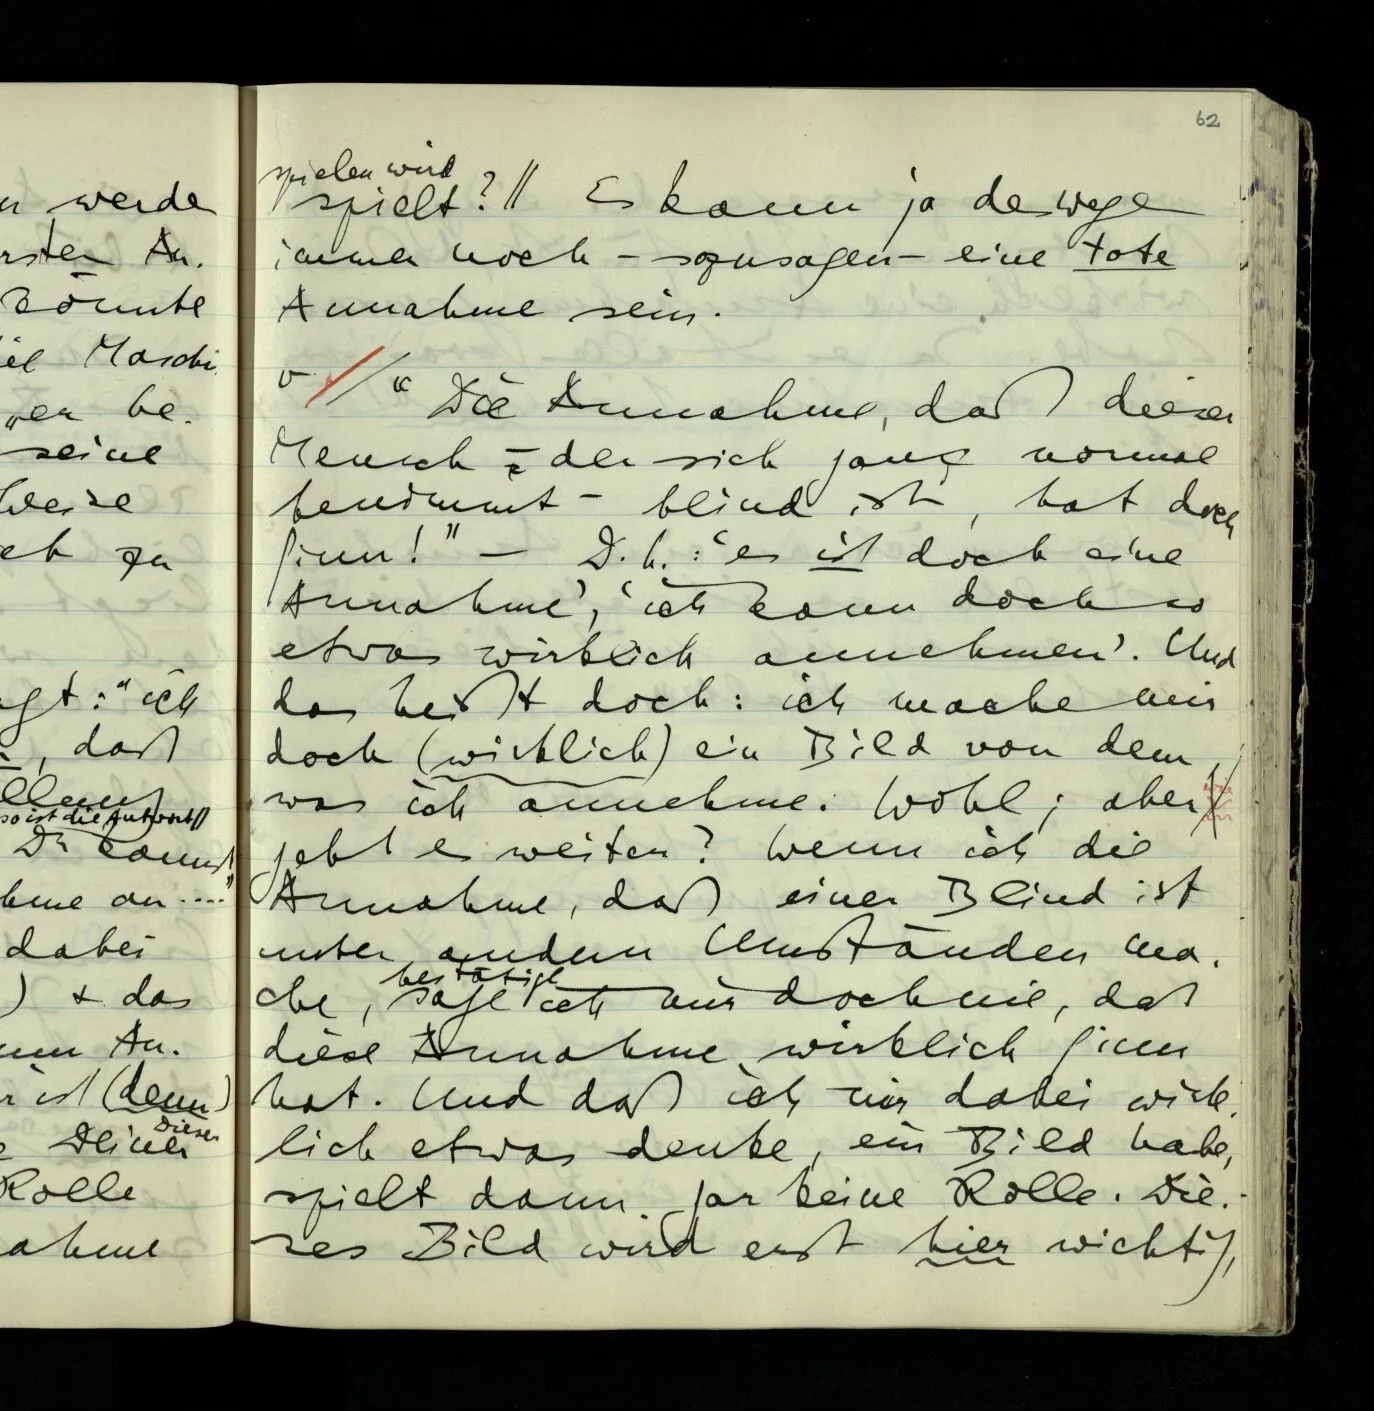 n werde
rsten An-
könnte
iel Maschi-
„er be-
seine
Weise
zu
gt: "ich
, daß
so ist die Antwort//
Du kannst
hme an ...."
dabei
) & das
An-
ist (denn)
Dieser
Deiner
Rolle
nahme
62
spielen wird
spielt? // Es kann ja deswegen
immer noch – sozusagen – eine tote
Annahme sein.
∨ // "Die Annahme, daß dieser
Mensch – der sich ganz normal
benimmt – blind ist, hat doch
Sinn!" — D.h.: 'es ist doch eine
Annahme', 'ich kann doch so
etwas wirklich annehmen'. Und
das heißt doch: ich mache mir
doch (wirklich) ein Bild von dem,
was ich annehme. Wohl; aber
geht es weiter? Wenn ich die
Annahme, daß einer Blind ist
unter andern Umständen ma-
bestätige
che, sage ich mir doch nie, daß
diese Annahme wirklich Sinn
hat. Und daß ich mir dabei wirk-
lich etwas denke, ein Bild habe,
spielt dann gar keine Rolle. Die-
ses Bild wird erst hier wichtig,